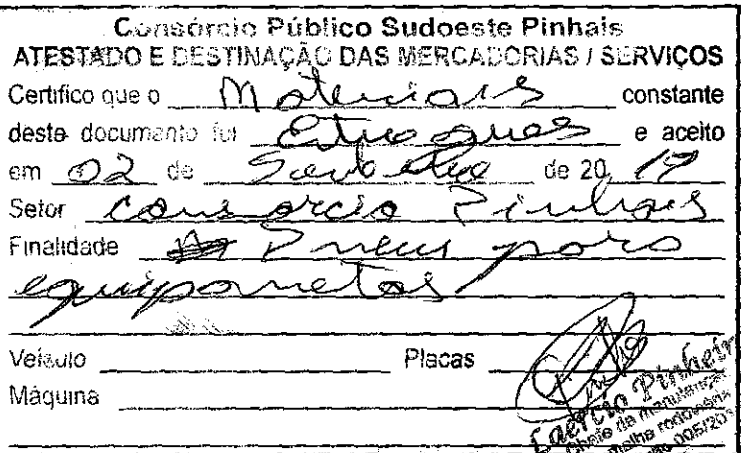 Consórcio Público Sudoeste Pinhais
ATESTADO E DESTINAÇÃO DAS MERCADORIAS / SERVIÇOS
Certifico que o Materiais constante
deste documento foi e aceito
em 02 de de 20
Setor Consorcio Pinhais
Finalidade Pneus para
equipametos
Veículo Placas
Máquina
Laércio Pinheir
chefe da manutenção
malha rodoviária
005/201